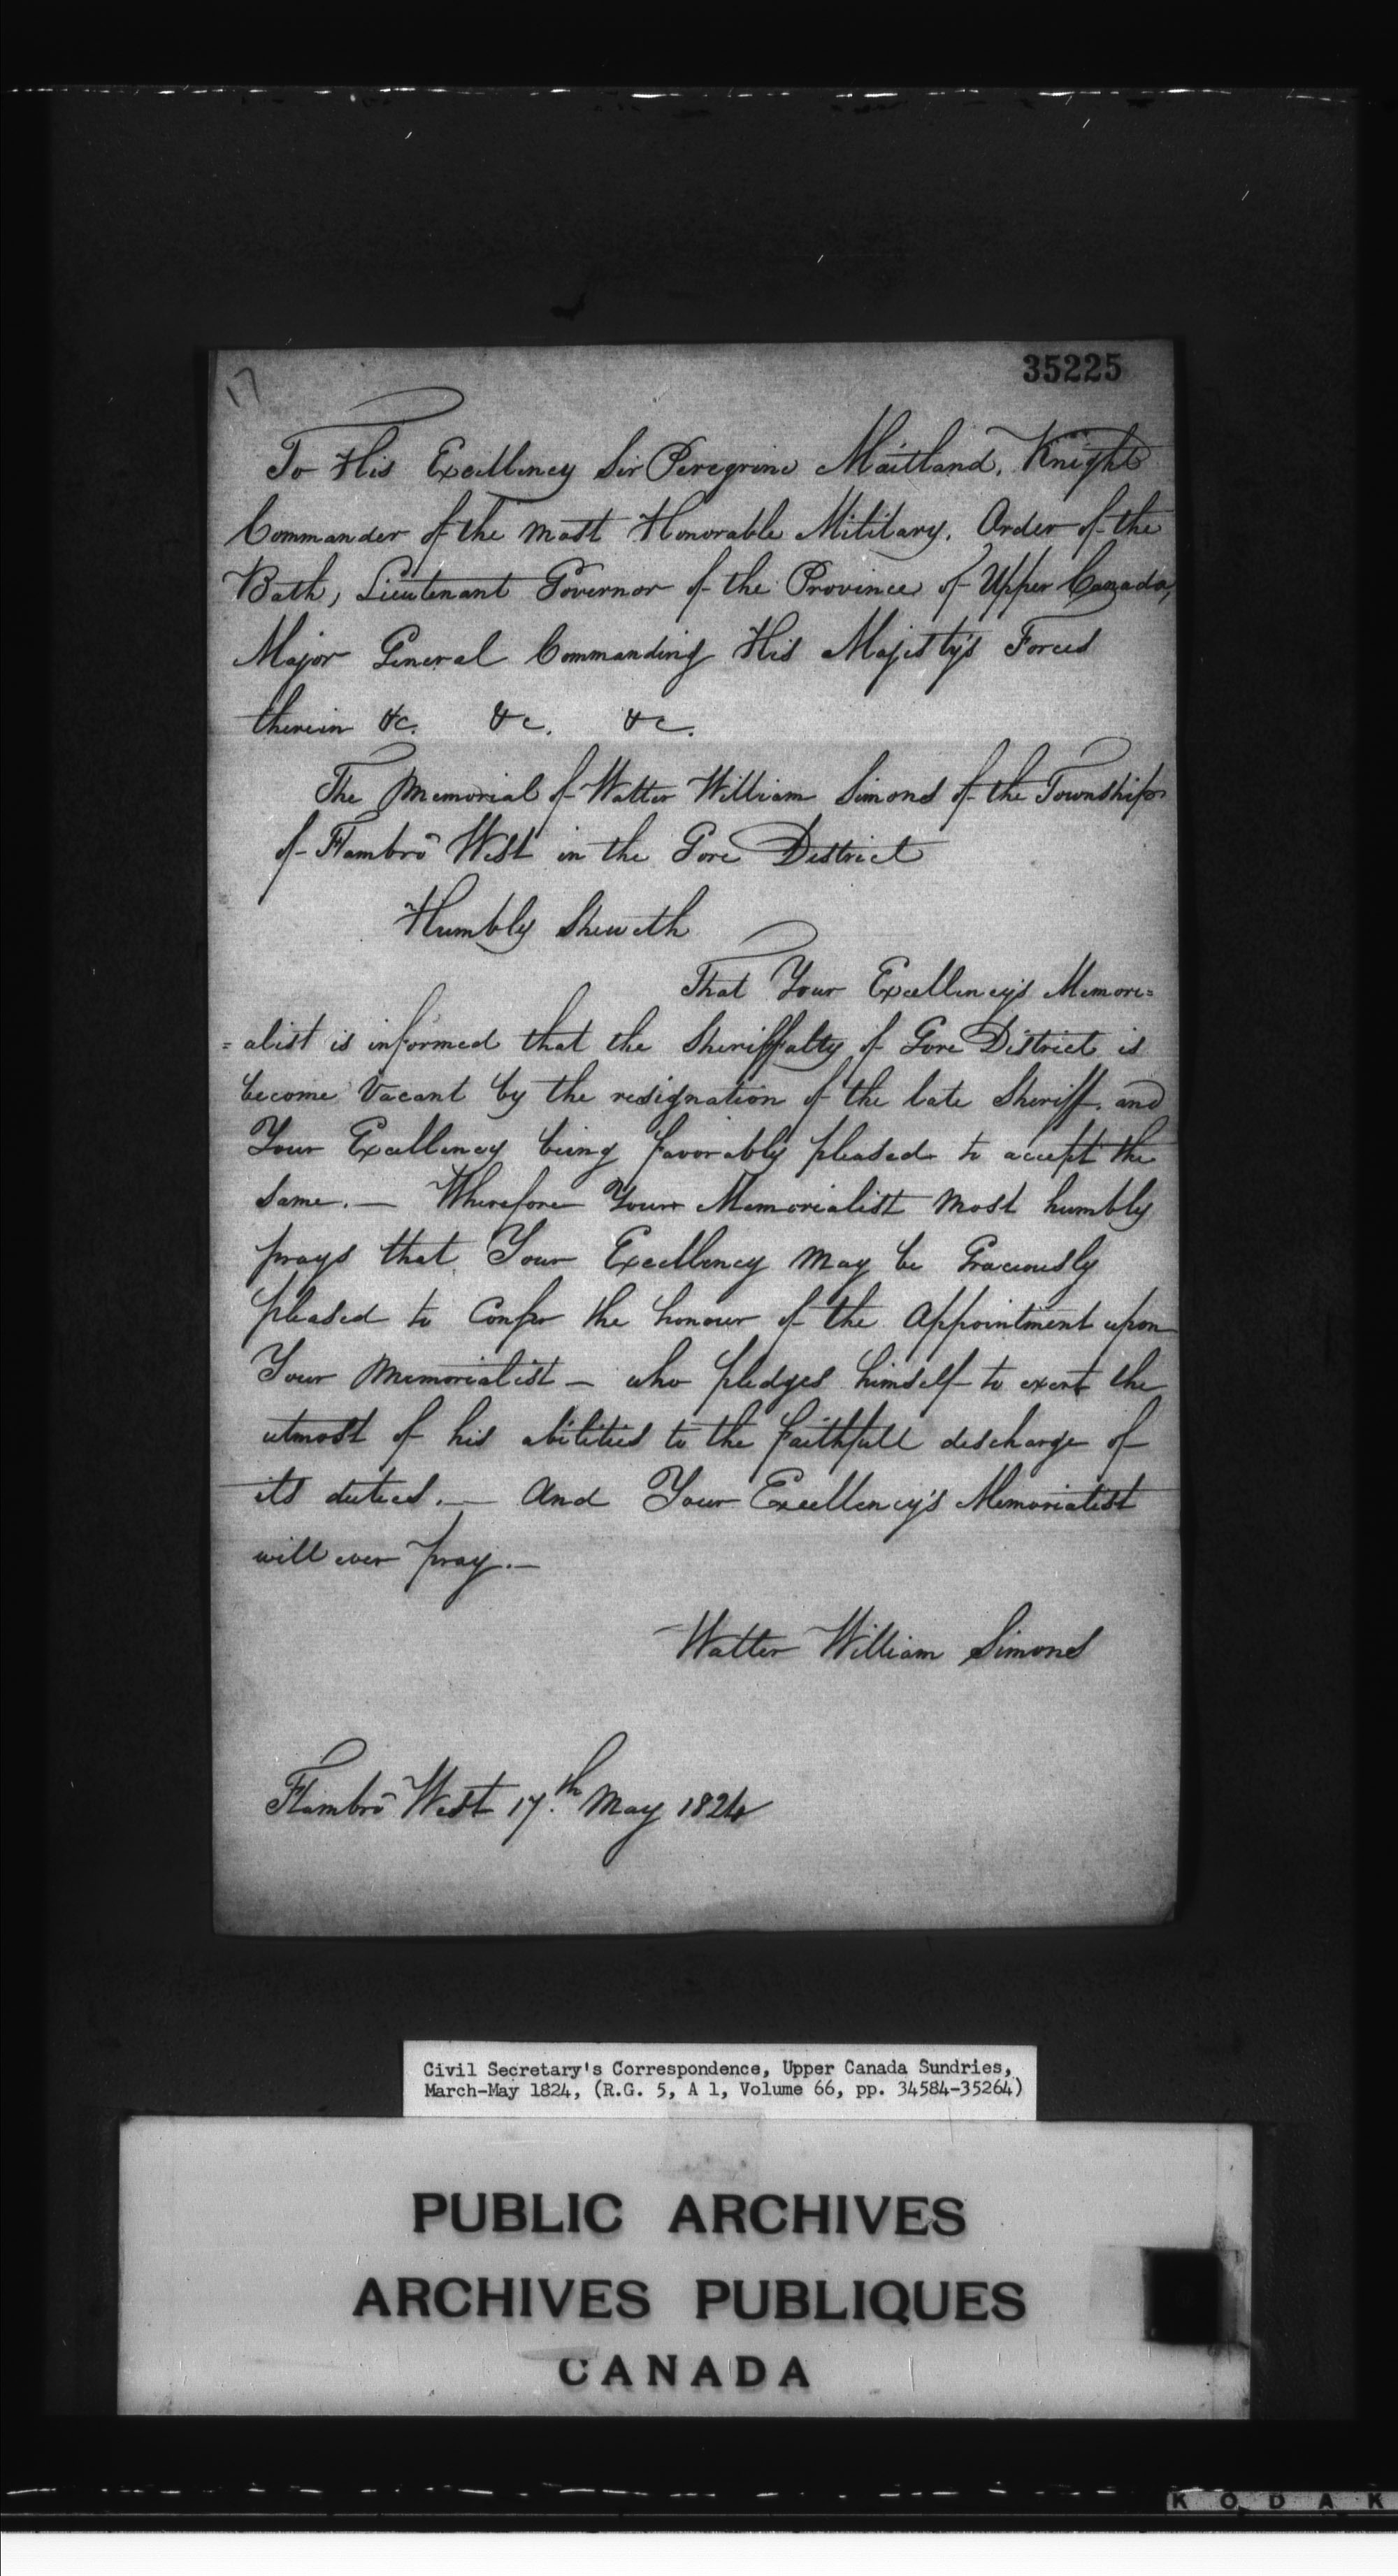 17
35225
To His Excellency Sir Peregrine Maitland, Knight
Commander of the most Honorable Military, Order of the
Bath, Lieutenant Governor of the Province of Upper Canada,
Major General Commanding His Majesty's Forces
therein &c. &c. &c.
The Memorial of Walter William Simons of the Township
of Flambro West in the Gore District
Humbly Sheweth
That Your Excellency's Memori=
=alist is informed that the Sheriffalty of Gore District is
become Vacant by the resignation of the late Sheriff, and
Your Excellency being favorably pleased to accept the
same. — Wherefore Your Memorialist most humbly
prays that Your Excellency may be Graciously
pleased to Confer the honour of the Appointment upon
Your Memorialist — who pledges himself to exert the
utmost of his abilities to the faithfull discharge of
its duties. — And Your Excellency's Memorialist
will ever pray. —
Walter William Simons
Flambro West 17.th May 1824
Civil Secretary's Correspondence, Upper Canada Sundries,
March-May 1824, (R.G. 5, A 1, Volume 66, pp. 34584-35264)
PUBLIC ARCHIVES
ARCHIVES PUBLIQUES
CANADA
KODAK